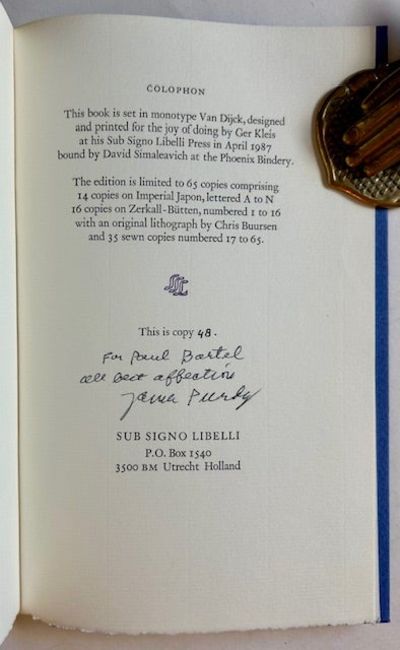 COLOPHON
This book is set in monotype Van Dijck, designed
and printed for the joy of doing by Ger Kleis
at his Sub Signo Libelli Press in April 1987
bound by David Simaleavich at the Phoenix Bindery.
The edition is limited to 65 copies comprising
14 copies on Imperial Japon, lettered A to N
16 copies on Zerkall-Bütten, numbered 1 to 16
with an original lithograph by Chris Buursen
and 35 sewn copies numbered 17 to 65.
SSL
This is copy 48.
For Paul Bartel
all best affection
James Purdy
SUB SIGNO LIBELLI
P.O. Box 1540
3500 BM Utrecht Holland